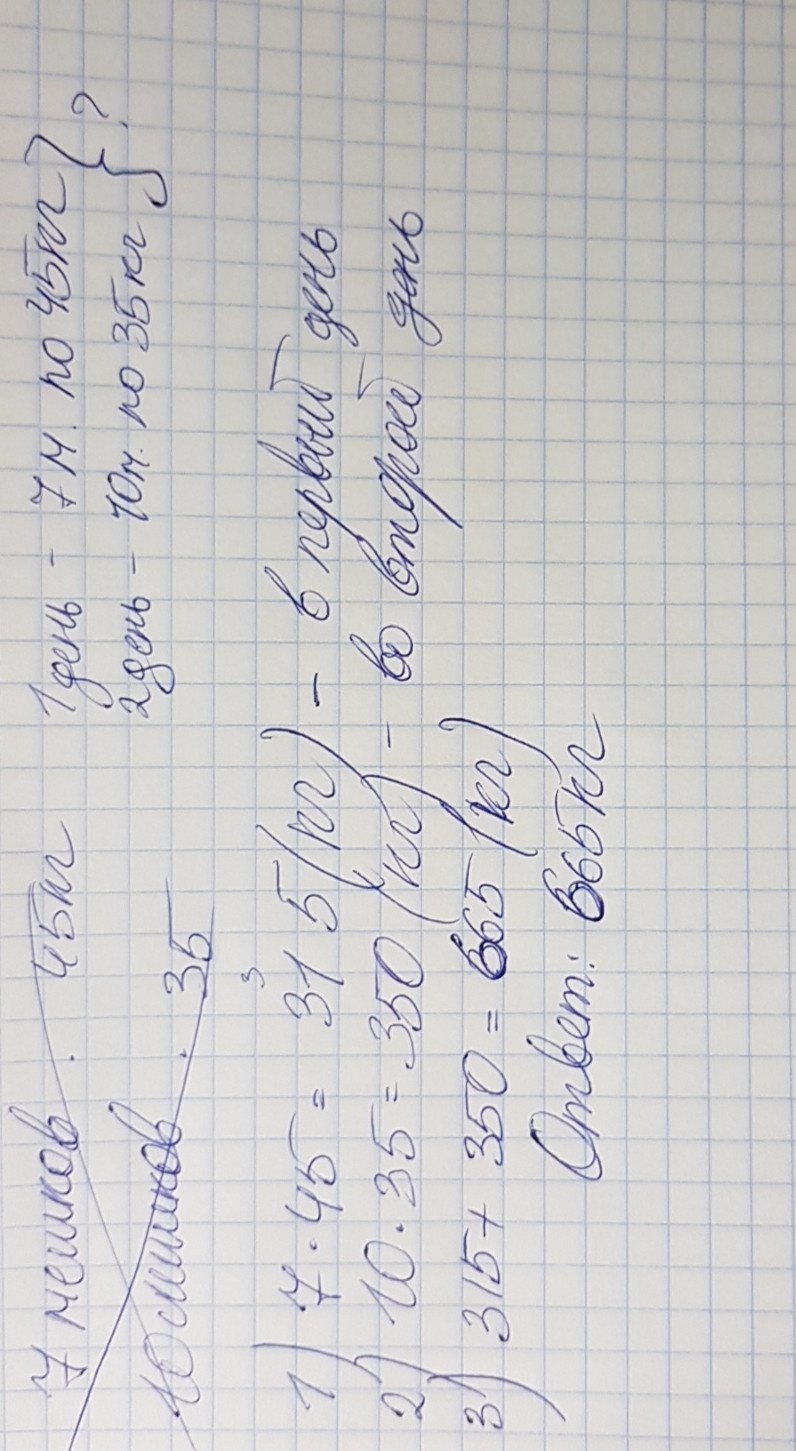 7 мешков . 45кг
10 мешков . 35
1 день - 7 м. по 45кг } ?
2 день - 10м. по 35кг
3
1) 7 · 45 = 315 (кг) - в первый день
2) 10 · 35 = 350 (кг) - во второй день
3) 315 + 350 = 665 (кг)
Ответ: 665кг